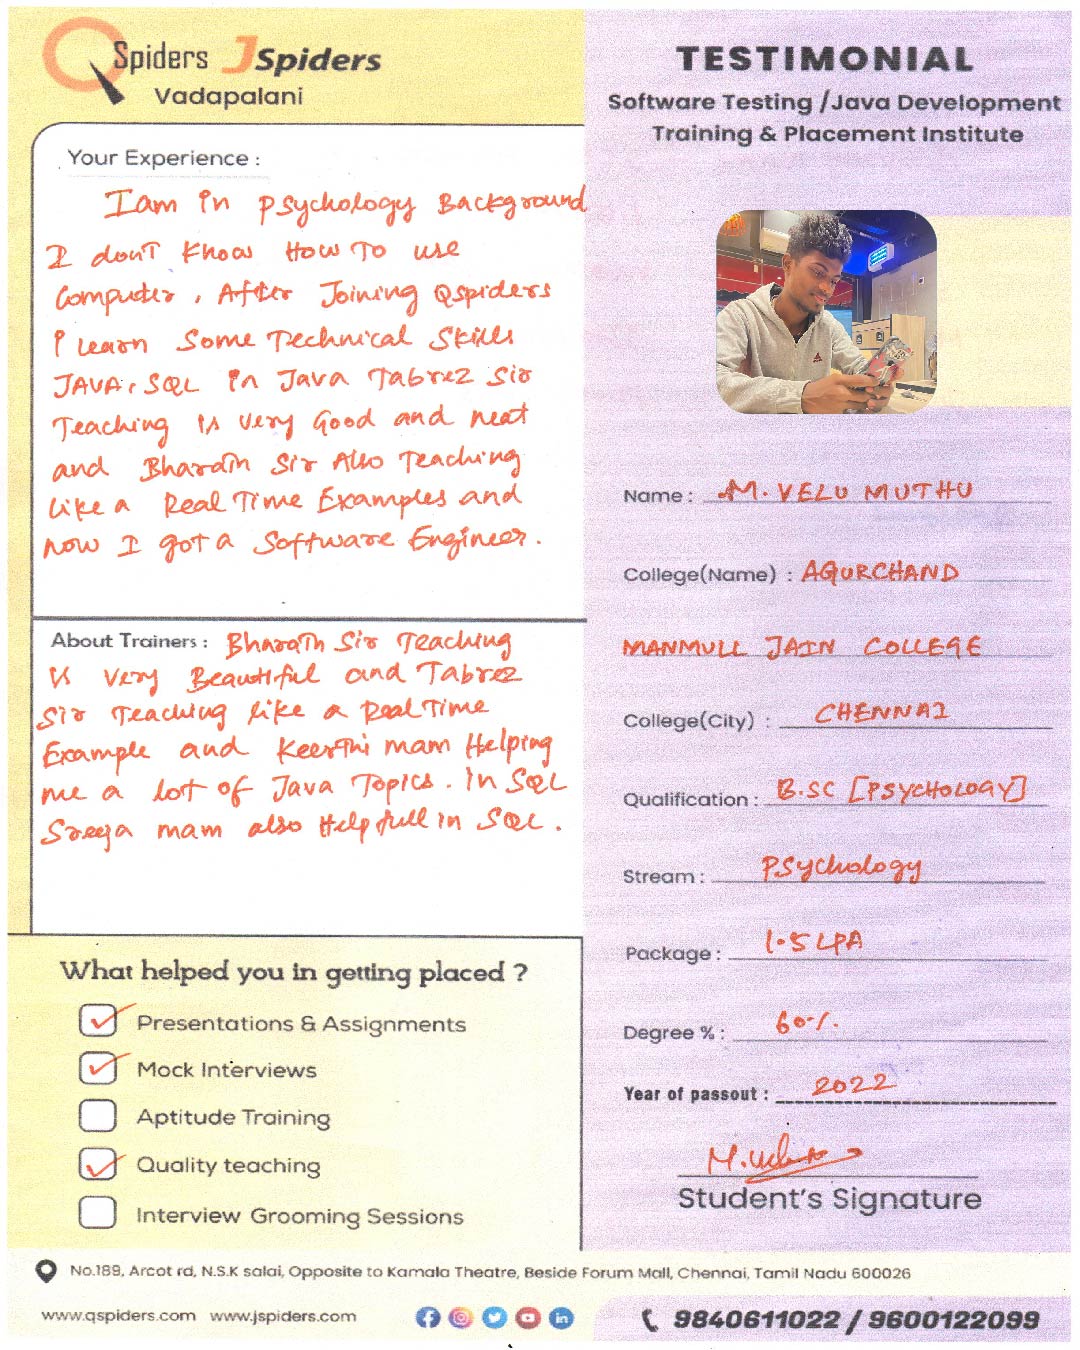 QSpiders JSpiders
Vadapalani
Your Experience :
I am in Psychology Background
I don't Know How To use
Computer, After Joining Qspiders
I Learn Some Technical Skills
JAVA, SQL in Java Tabrez Sir
Teaching is very Good and neat
and Bharath Sir Also Teaching
like a Real Time Examples and
now I got a Software Engineer.
About Trainers : Bharath Sir Teaching
is very Beautiful and Tabrez
Sir Teaching like a Real Time
Example and Keerthi mam Helping
me a lot of Java Topics. In SQL
Sreeja mam also Helpfull in SQL.
What helped you in getting placed ?
Presentations & Assignments
Mock Interviews
Aptitude Training
Quality teaching
Interview Grooming Sessions
TESTIMONIAL
Software Testing /Java Development
Training & Placement Institute
Name : M. VELU MUTHU
College(Name) : AGURCHAND
MANMULL JAIN COLLEGE
College(City) : CHENNAI
Qualification : B.SC [PSYCHOLOGY]
Stream : Psychology
Package : 1.5 LPA
Degree % : 60%
Year of passout : 2022
Student's Signature
No.189, Arcot rd, N.S.K salai, Opposite to Kamala Theatre, Beside Forum Mall, Chennai, Tamil Nadu 600026
www.qspiders.com www.jspiders.com
9840611022 / 9600122099